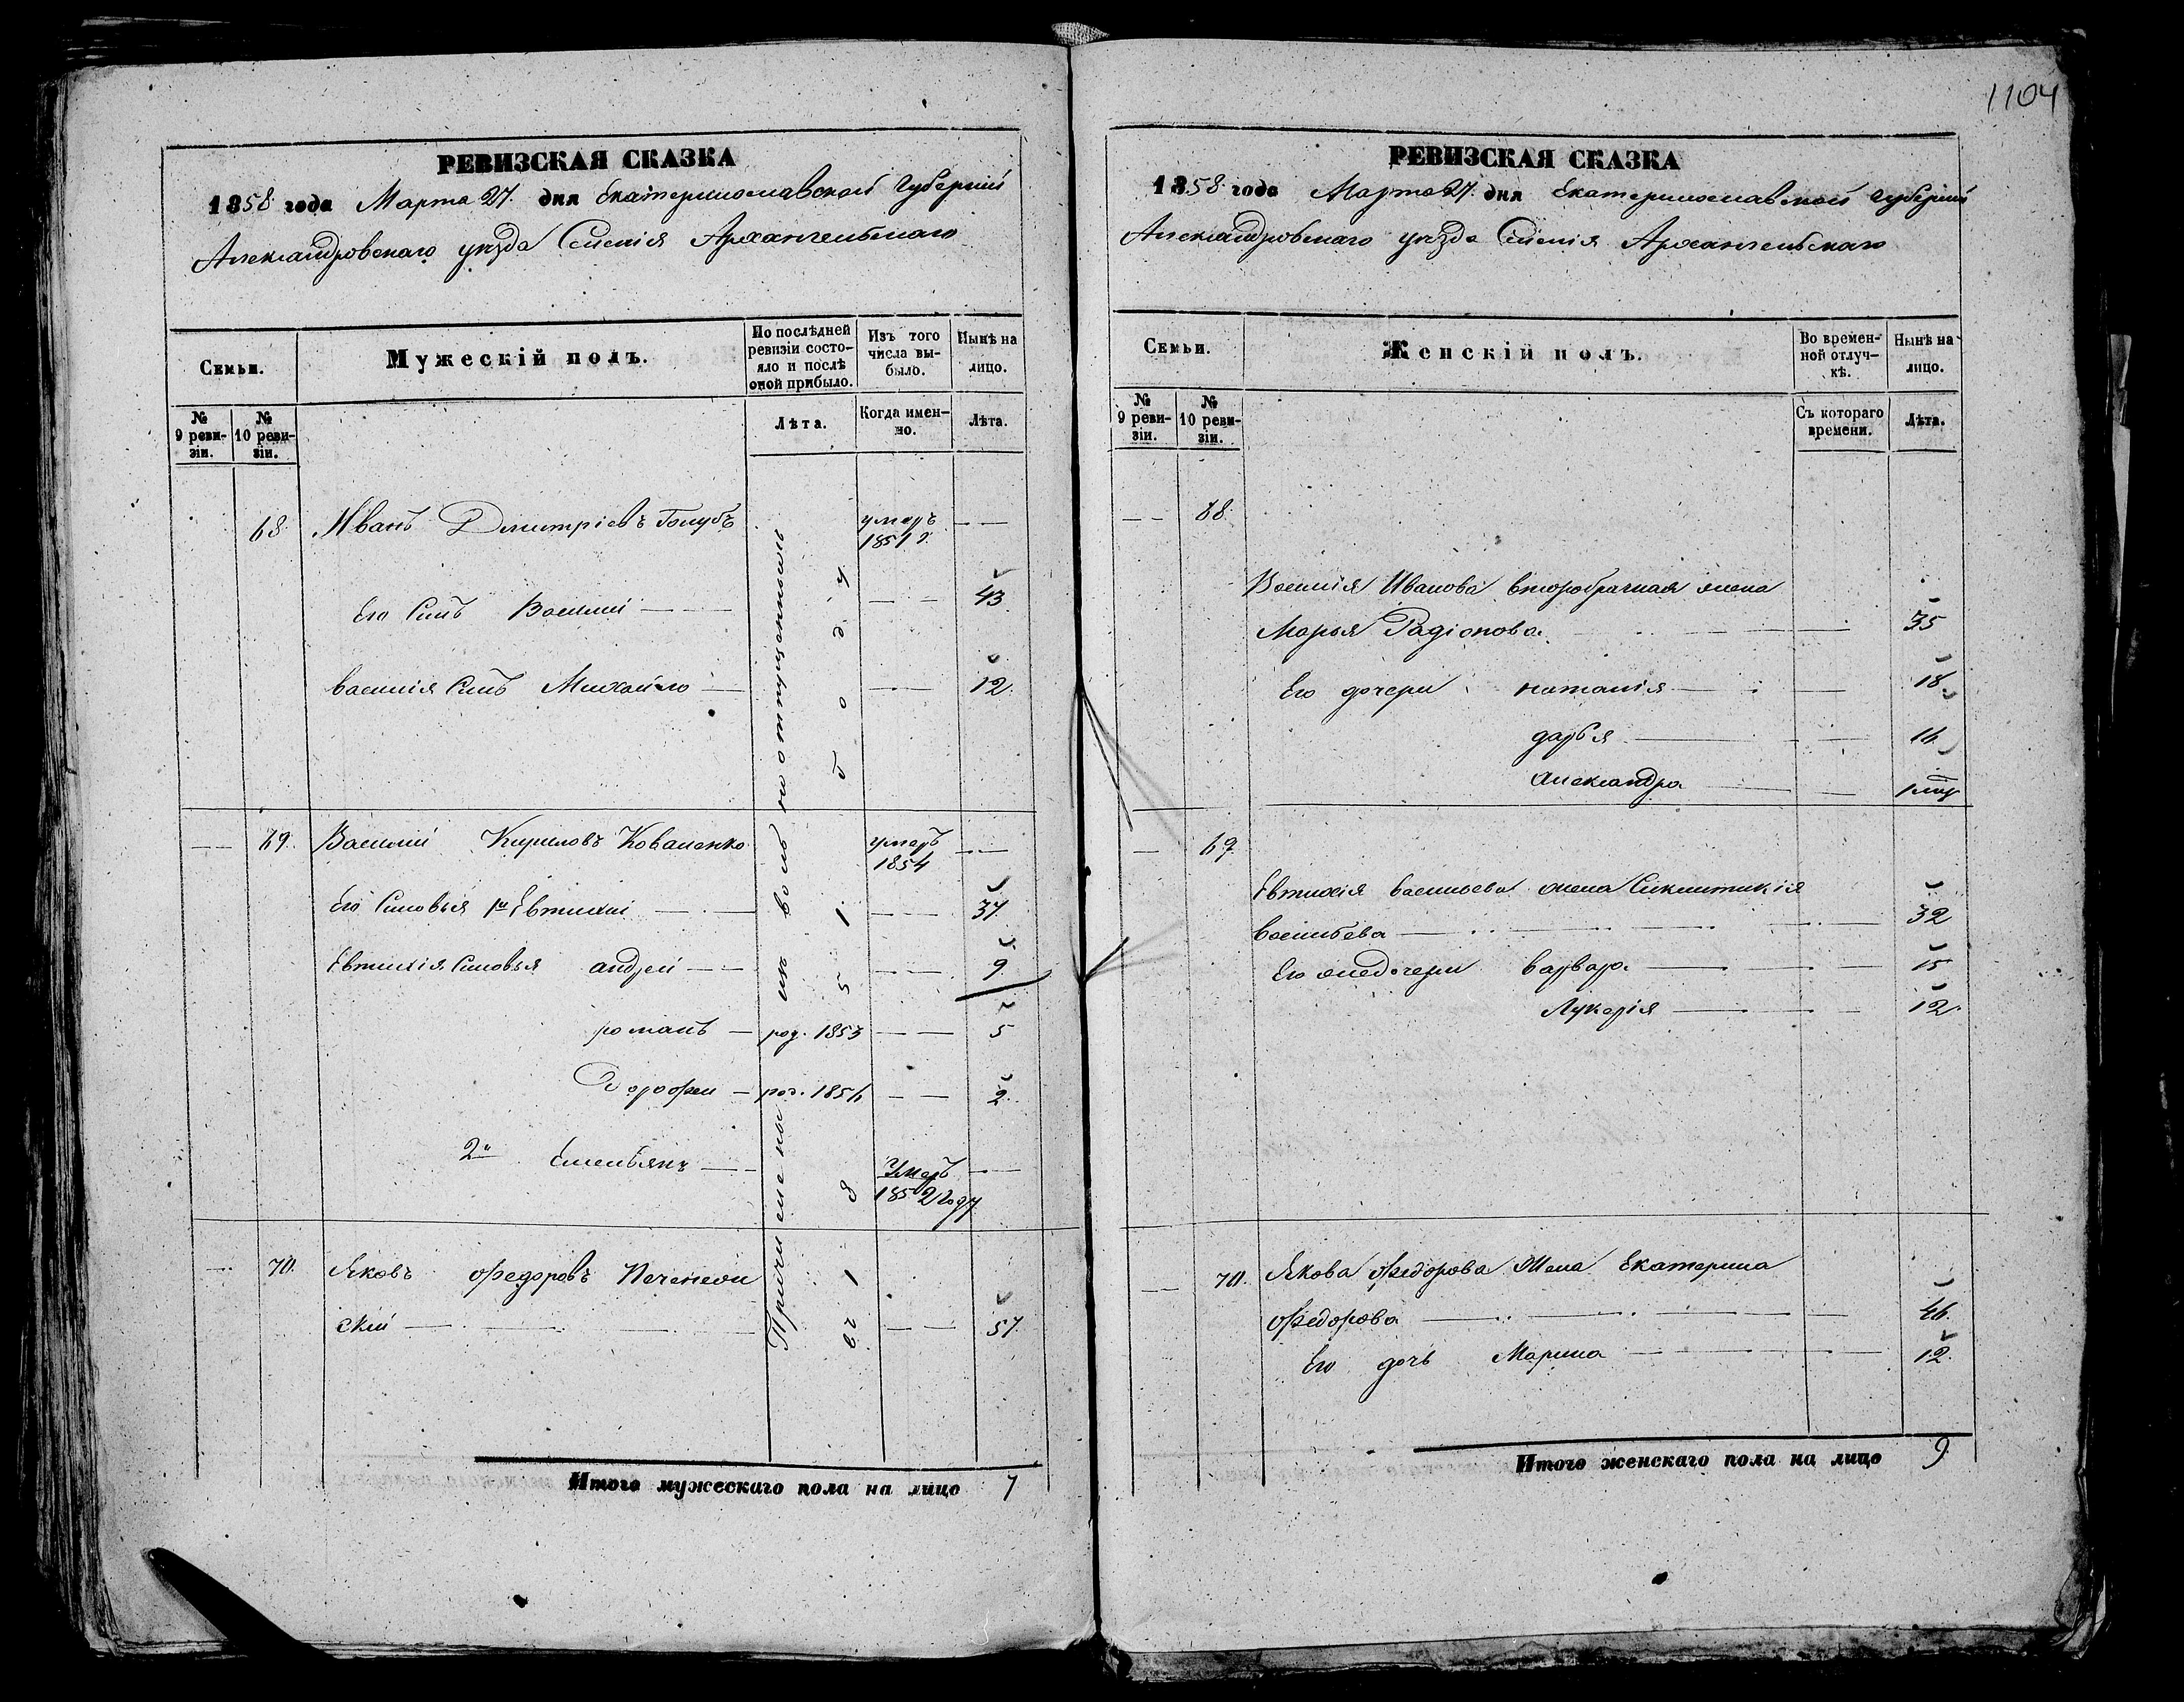 1104
РЕВИЗСКАЯ СКАЗКА
1858 года Марта 27. дня Екатеринославской Губерніи
Александровскаго уѣзда Селенія Архангельскаго
Семьи.
Мужескій полъ.
По послѣдней ревизіи состо-
яло и послѣ оной прибыло.
Изъ того числа вы-
было.
Нынѣ на лицо.
№ 9 реви-
зіи.
№ 10 реви-
зіи.
Лѣта.
Когда имен-
но.
Лѣта.
Причислены изъ вольноотпущенныхъ
въ 1851 году
68. Иванъ Дмитріевъ Голубъ умеръ 1851 г. — —
Его Сынъ Василій — — — — 43
Василія Сынъ Михайло — — — 12.
— — 69. Василій Кириловъ Коваленко умеръ 1854 — —
Его Сыновья 1й Евтихій — — — — 37
Евтихія Сыновья андрей — — — — 9
романъ — род. 1853 — — 5
Дорофей — род. 1856 — — 2.
2й Емельянъ — — 8 Умеръ 1852 году — —
— 70. Яковъ Федоровъ Печенев
скій — — — — — — 57.
Итого мужескаго пола на лицо 7
РЕВИЗСКАЯ СКАЗКА
1858 года Марта 27. дня Екатеринославской Губерніи
Александровскаго уѣзда Селенія Архангельскаго
Семьи.
Женскій полъ.
Во времен-
ной отлуч-
кѣ.
Нынѣ на лицо.
№ 9 реви-
зіи.
№ 10 реви-
зіи.
Съ котораго времени.
Лѣта.
— — 68.
Василія Иванова второбрачная жена
Марья Радіонова. — — — 35
Его дочери наталія — — — 18
дарья — — — 16
Александра — —
— 69.
Евтихія Васильева жена
Васильева — — — — 32
Его же дочери варвара — — — 15
Лукерія — — — 12.
— — 70. Якова Федорова Жена Екатерина
Федорова — — — — 46.
Его дочь Марина — — — 12.
Итого женскаго пола на лицо 9